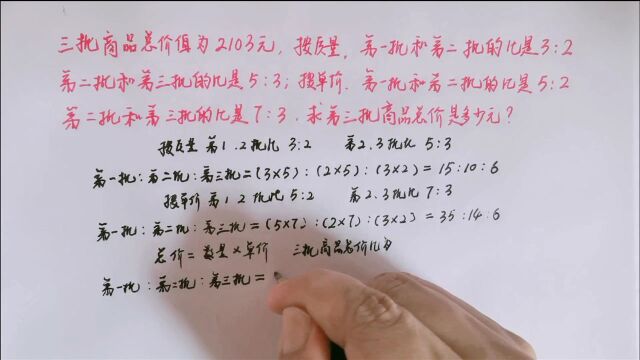 三批商品总价值为2103元，按质量，第一批和第二批的比是3:2
第二批和第三批的比是5:3；按单价，第一批和第二批的比是5:2
第二批和第三批的比是7:3，求第三批商品总价是多少元？
按质量 第1.2批比 3:2 第2.3批比 5:3
第一批:第二批:第三批=(3×5):(2×5):(3×2)=15:10:6
按单价 第1.2批比 5:2 第2.3批比 7:3
第一批:第二批:第三批=(5×7):(2×7):(3×2)=35:14:6
总价=数量×单价 三批商品总价比为
第一批:第二批:第三批=